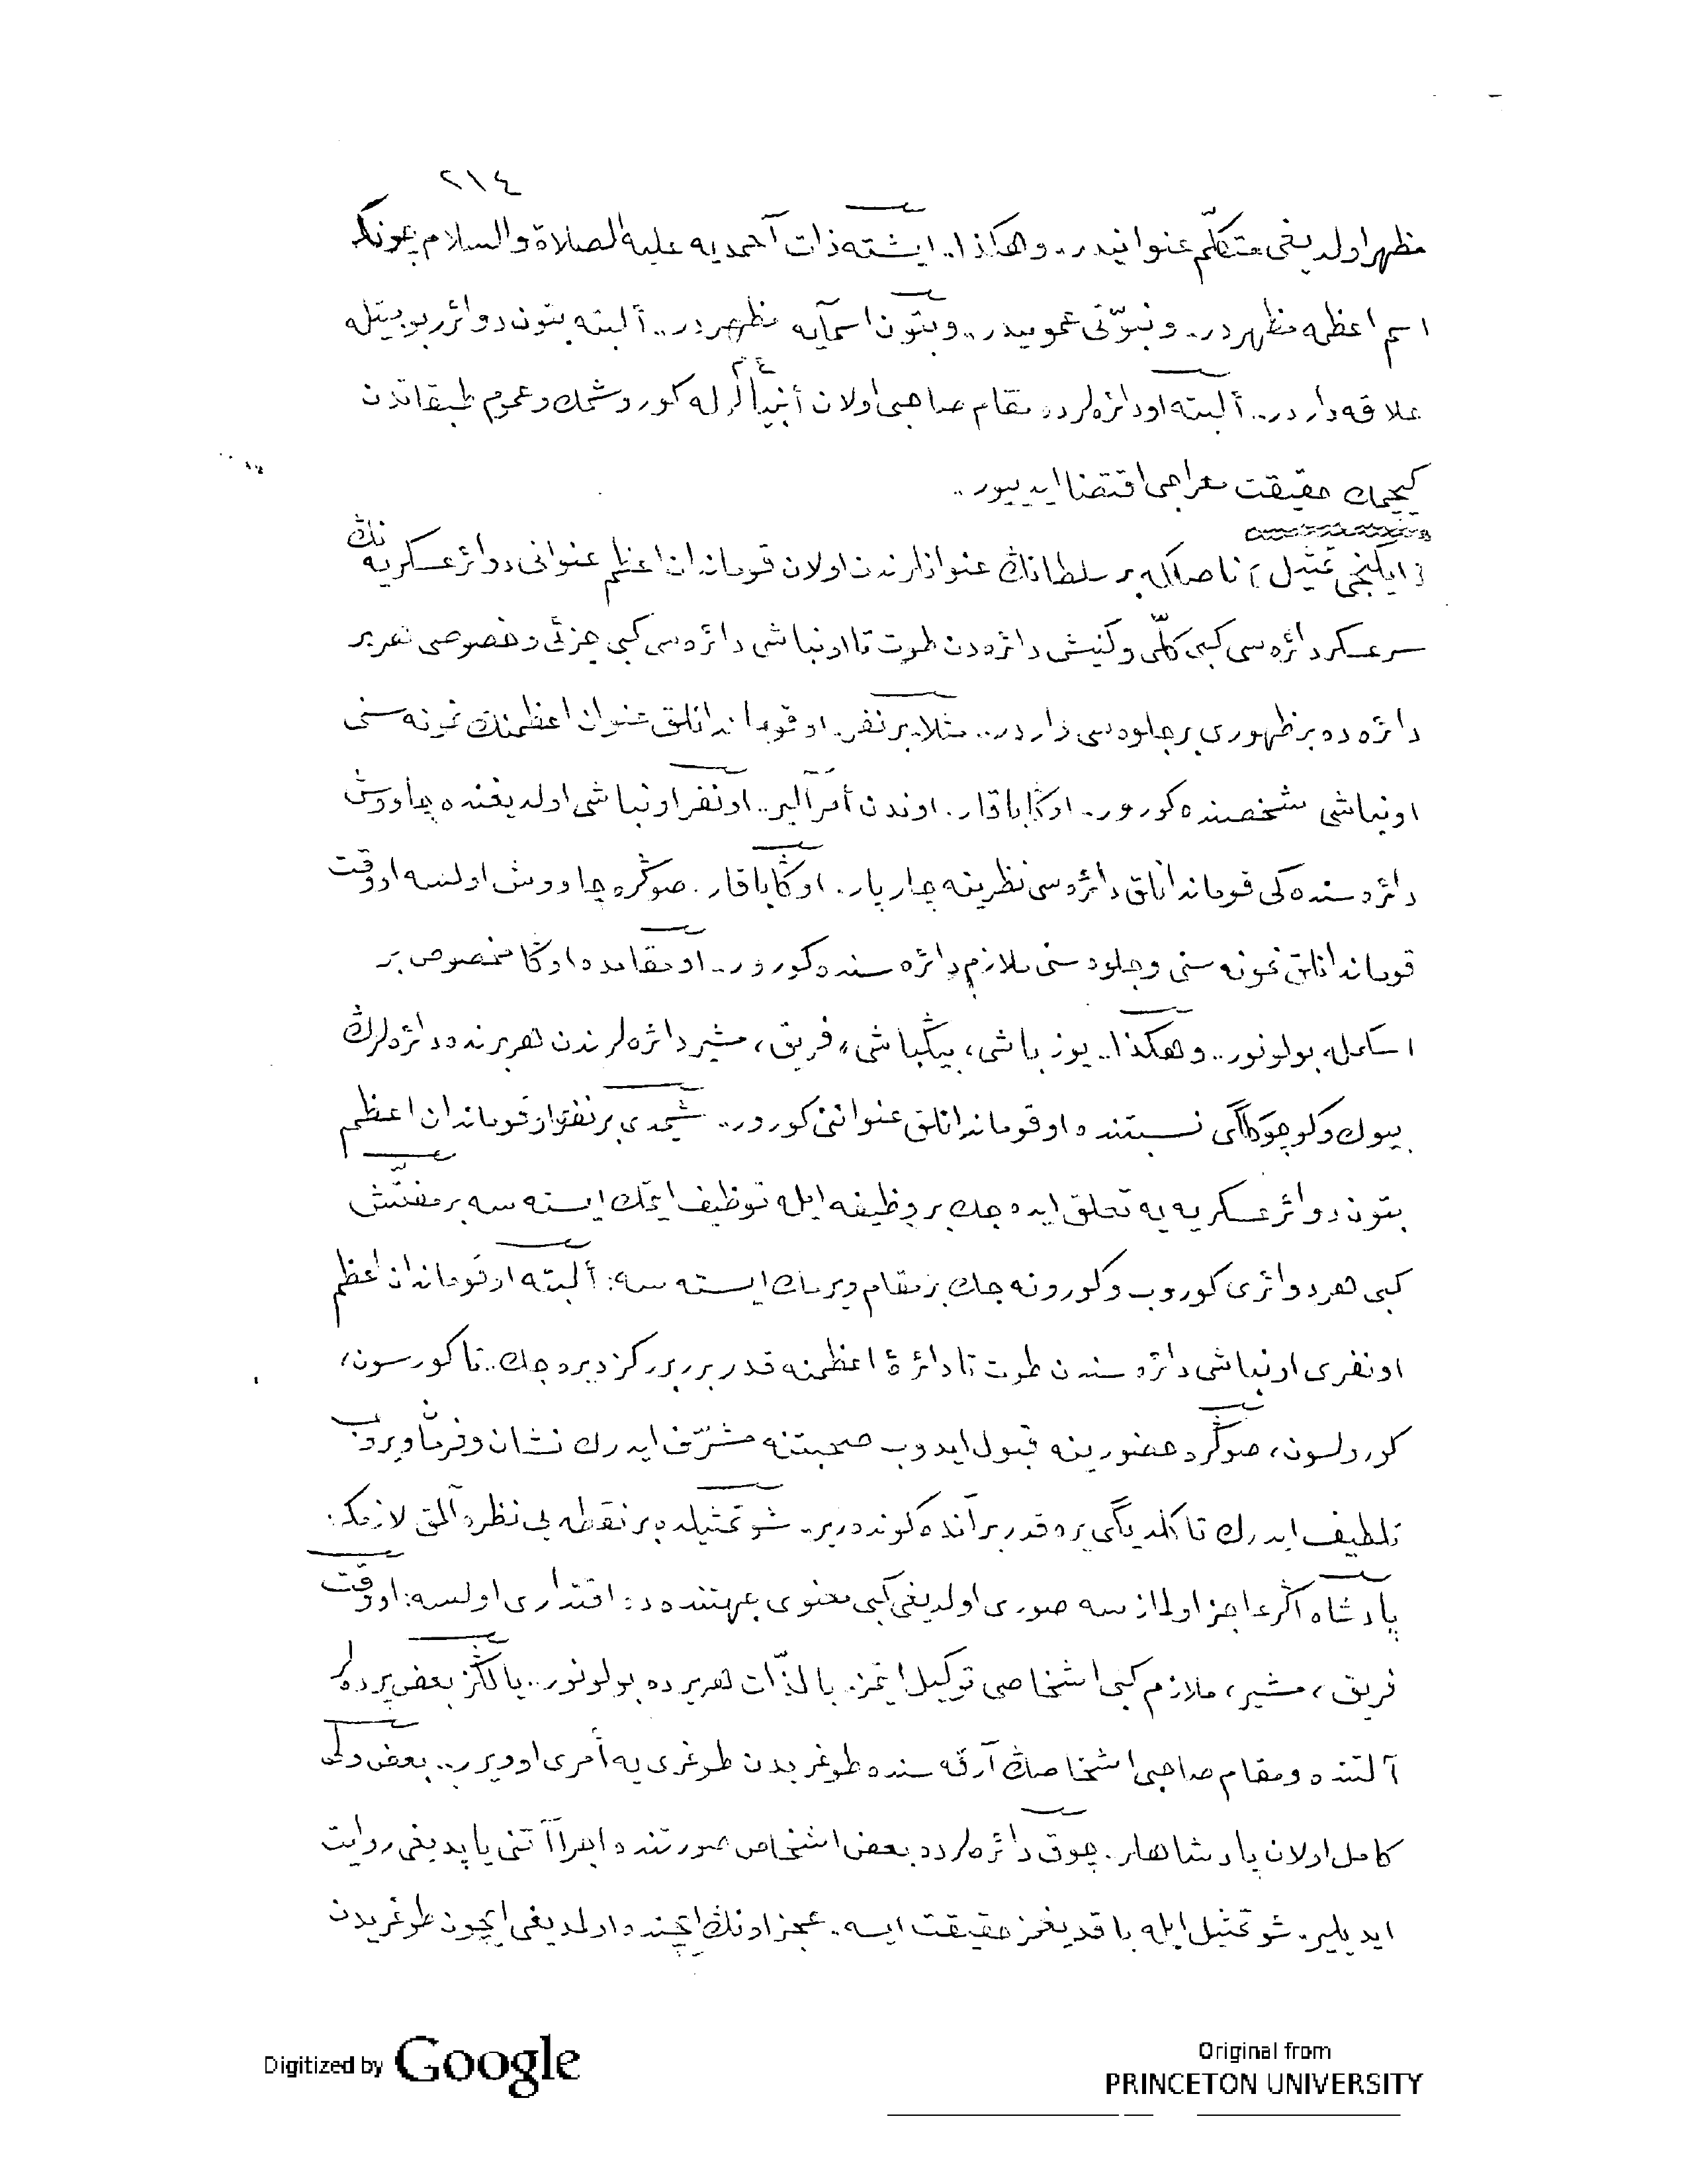 ٢١٤
مظهر اولديغى متكلّم عنوانيدر.. وهكذا.. ايشته ذات آحمديه عليه الصلاة والسلام چونكه
اسم اعظمه مظهردر.. ونبوّتى عموميدر.. وبتون اسمآيه مظهردر.. ألبته بتون دوائر ربوبيتله
علاقه داردر.. ألبته او دائره لرده مقام صاحبى اولان أنبيآلرله كوروشمك وعموم طبقاتدن
كيچمك حقيقت معراجى اقتضا ايدييور..
[ايكنجى تمثيل] ناصلكه بر سلطانڭ عنوانلرندن اولان قوماندان اعظم عنوانى دوائر عسكريه نڭ
سرعسكر دائره سى كبى كلّى وكنيش دائره دن طوت تا اونباشى دائره سى كبى جزئى وخصوصى هر بر
دائره ده بر ظهورى بر جلوه سى واردر.. مثلا بر نفر. او قوماندانلق عنوان اعظمنڭ نمونه سنى
اونباشى شخصنده كورور.. اوڭا باقار. اوندن أمر آلير.. او نفر اونباشى اولديغنده چاووش
دائره سنده كى قوماندانلق دائره سى نظرينه چارپار. اوڭا باقار. صوڭره چاووش اولسه او وقت
قوماندانلق نمونه سنى وجلوه سنى ملازم دائره سنده كورور.. او مقامده اوڭا مخصوص بر
اسكمله بولونور.. وهكذا.. يوزباشى، بيڭباشى، فريق، مشير دائره لرندن هر برنده دائره لرڭ
بيوك وكوچوكلگى نسبتنده او قوماندانلق عنواننى كورور.. شيمدى بر نفرى او قوماندان اعظم
بتون دوائر عسكريه يه تعلق ايده جك بر وظيفه ايله توظيف ايتمك ايسته سه بر مفتّش
كبى هر دوائرى كوروب وكورونه جك بر مقام ويرمك ايسته سه: ألبته او قوماندان اعظم
او نفرى اونباشى دائره سندن طوت تا دائرۀ اعظمنه قدر برر برر كزديره جك.. تا كورسون،
كورولسون، صوڭره حضورينه قبول ايدوب صحبتنه مشرّف ايدرك نشان وفرمان ويروب
تلطيف ايدرك تا كلديگى يره قدر بر آنده كوندرير. شو تمثيلده بر نقطه يى نظره آلمق لازمكه.
پادشاه اڭر عاجز اولمازسه صورى اولديغى كبى معنوى جهتنده ده: اقتدارى اولسه: او وقت
فريق، مشير، ملازم كبى اشخاصى توكيل ايتمز. بالذّات هر يرده بولونور.. يالڭز بعض پرده لر
آلتنده ومقام صاحبى اشخاصڭ آرقه سنده طوغريدن طوغرى يه أمرى او ويرر.. بعض ولى
كامل اولان پادشاهلر. چوق دائره لرده بعض اشخاص صورتنده اجراآتنى ياپديغى روايت
ايديلير. شو تمثيل ايله باقديغمز حقيقت ايسه. عجز اونڭ ايچنده اولمديغى ايچون طوغريدن
Digitized by Google
Original from
PRINCETON UNIVERSITY